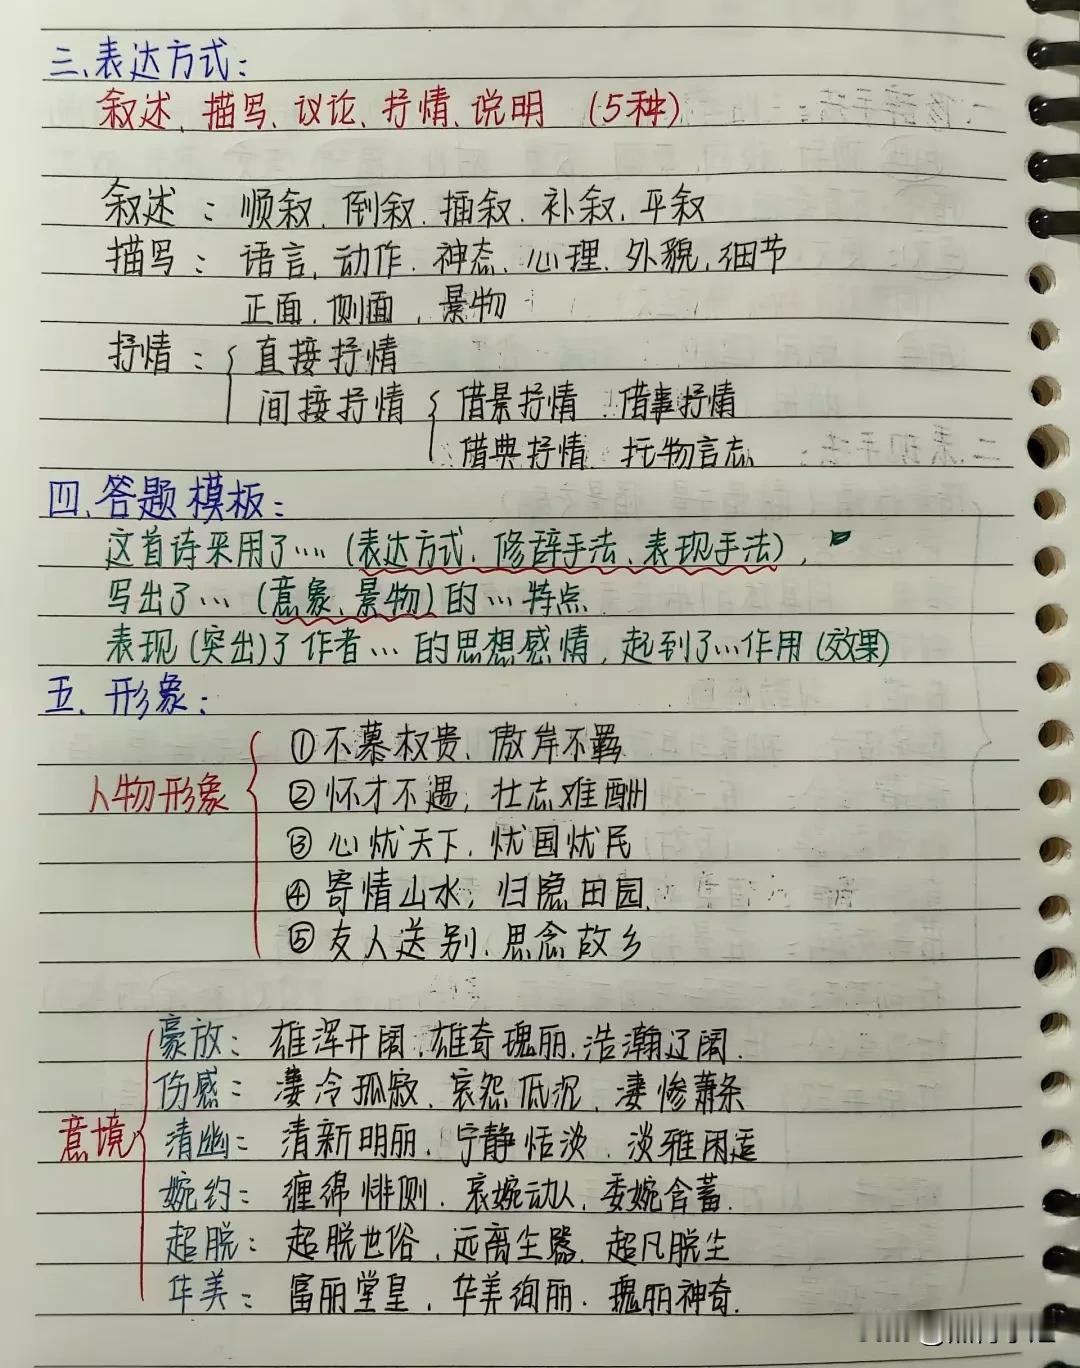 三、表达方式：
叙述、描写、议论、抒情、说明 （5种）
叙述：顺叙、倒叙、插叙、补叙、平叙
描写：语言、动作、神态、心理、外貌、细节
正面、侧面、景物
抒情：直接抒情
间接抒情 借景抒情、借事抒情
借典抒情、托物言志
四、答题模板：
这首诗采用了…（表达方式、修辞手法、表现手法），
写出了…（意象、景物）的…特点
表现（突出）了作者…的思想感情，起到了…作用（效果）
五、形象：
人物形象
①不慕权贵、傲岸不羁
②怀才不遇，壮志难酬
③心忧天下、忧国忧民
④寄情山水，归隐田园
⑤友人送别、思念故乡
意境
豪放：雄浑开阔、雄奇瑰丽、浩瀚辽阔.
伤感：凄冷孤寂、哀怨低沉、凄惨萧条
清幽：清新明丽、宁静恬淡、淡雅闲适
婉约：缠绵悱恻、哀婉动人、委婉含蓄.
超脱：超脱世俗、远离尘嚣、超凡脱尘
华美：富丽堂皇、华美绚丽、瑰丽神奇.